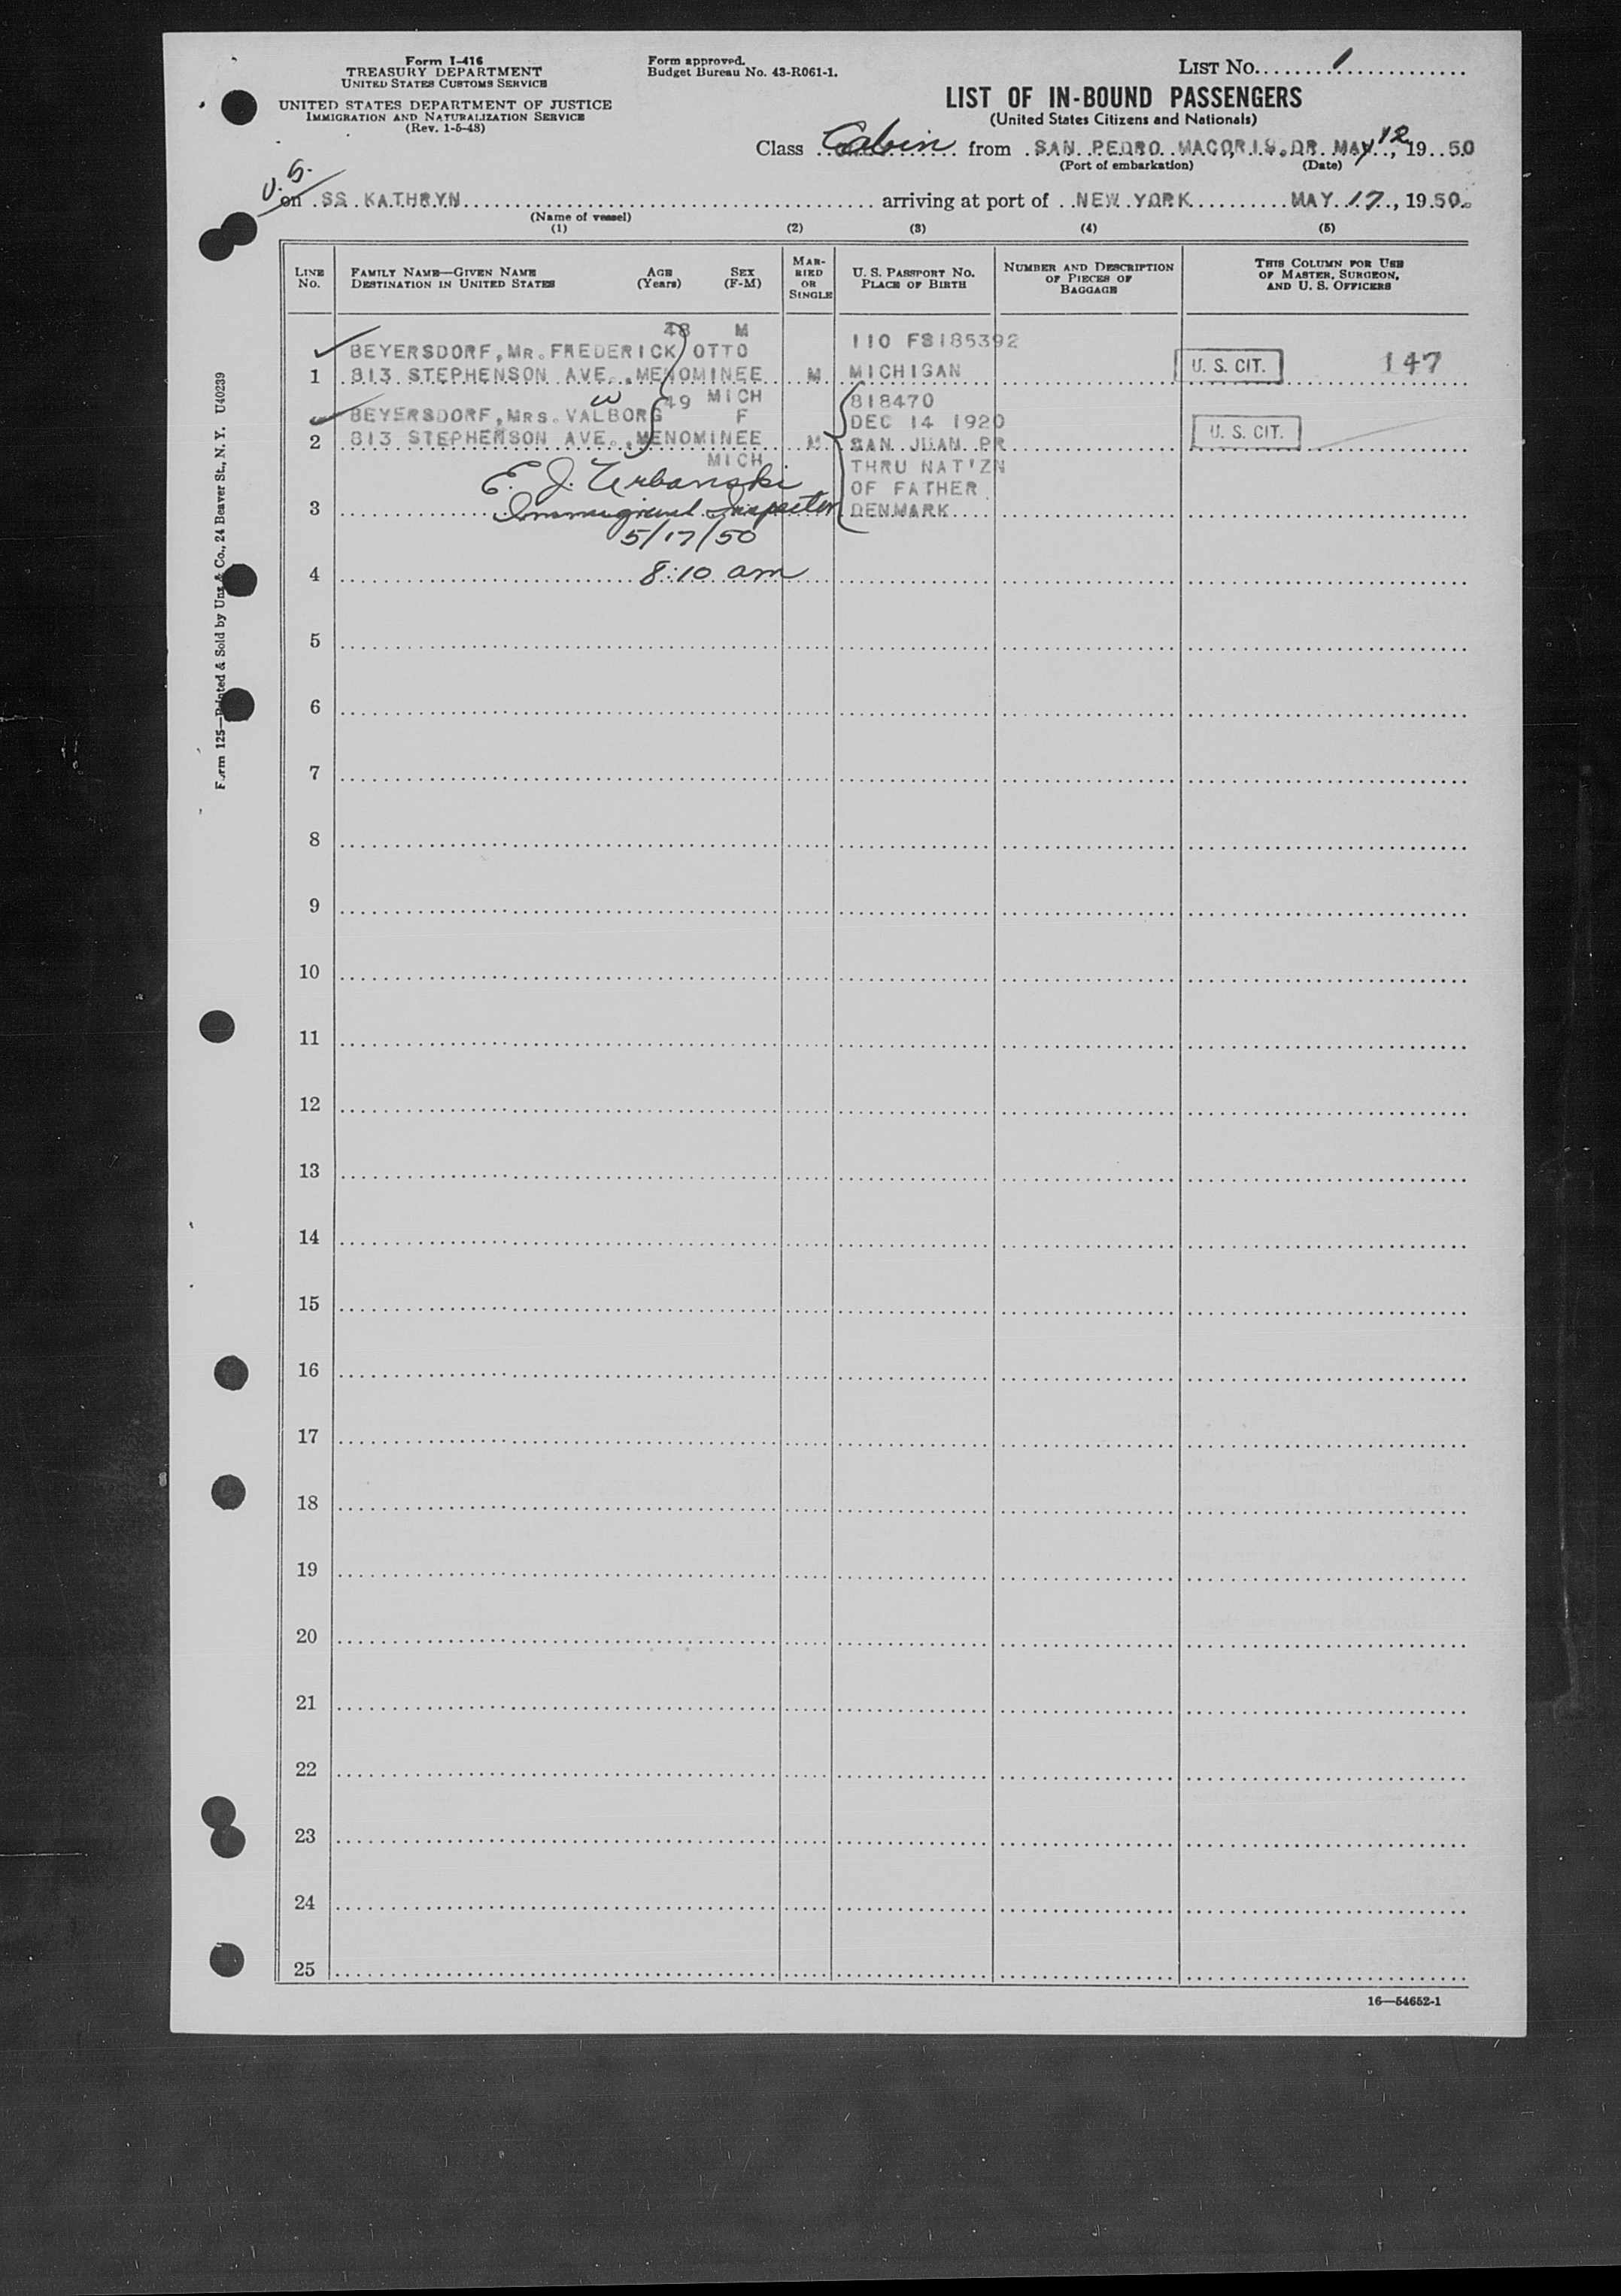 Form I-416
TREASURY DEPARTMENT
UNITED STATES CUSTOMS SERVICE
UNITED STATES DEPARTMENT OF JUSTICE
IMMIGRATION AND NATURALIZATION SERVICE
(Rev. 1-5-48)
Form approved.
Budget Bureau No. 43-R061-1.
LIST No. 1
LIST OF IN-BOUND PASSENGERS
(United States Citizens and Nationals)
Class Cabin from SAN PEDRO MACORIS.DR. MAY 12, 19 50
(Port of embarkation) (Date)
U.S.
on SS KATHRYN arriving at port of NEW YORK MAY 17, 19 50.
(Name of vessel)
(1) (2) (3) (4) (5)
LINE No.
FAMILY NAME—GIVEN NAME
DESTINATION IN UNITED STATES
AGE (Years)
SEX (F-M)
MARRIED OR SINGLE
U. S. PASSPORT No.
PLACE OF BIRTH
NUMBER AND DESCRIPTION OF PIECES OF BAGGAGE
THIS COLUMN FOR USE OF MASTER, SURGEON, AND U. S. OFFICERS
48 M
BEYERSDORF, MR. FREDERICK OTTO 110 FS185392
1 813 STEPHENSON AVE., MENOMINEE M MICHIGAN U. S. CIT. 147
W 49 MICH 818470
BEYERSDORF, MRS. VALBORG F DEC 14 1920
2 813 STEPHENSON AVE., MENOMINEE M SAN JUAN PR U. S. CIT.
MICH THRU NAT'ZN
E. J. Urbanski OF FATHER
3 Immigrant Inspector DENMARK
5/17/50
4 8:10 am
5
6
7
8
9
10
11
12
13
14
15
16
17
18
19
20
21
22
23
24
25
16—54652-1
Form 125—Printed & Sold by Unz & Co., 24 Beaver St., N. Y. U40239